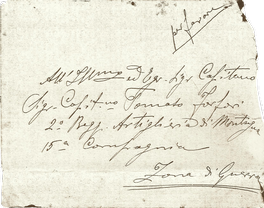 per favore
All'Illmo ed Egr. Sigr Capitano
Sigr Capitno Tomaso
2º Regg. Artiglieria di Montagna
15ª Compagnia
Zona di Guerra